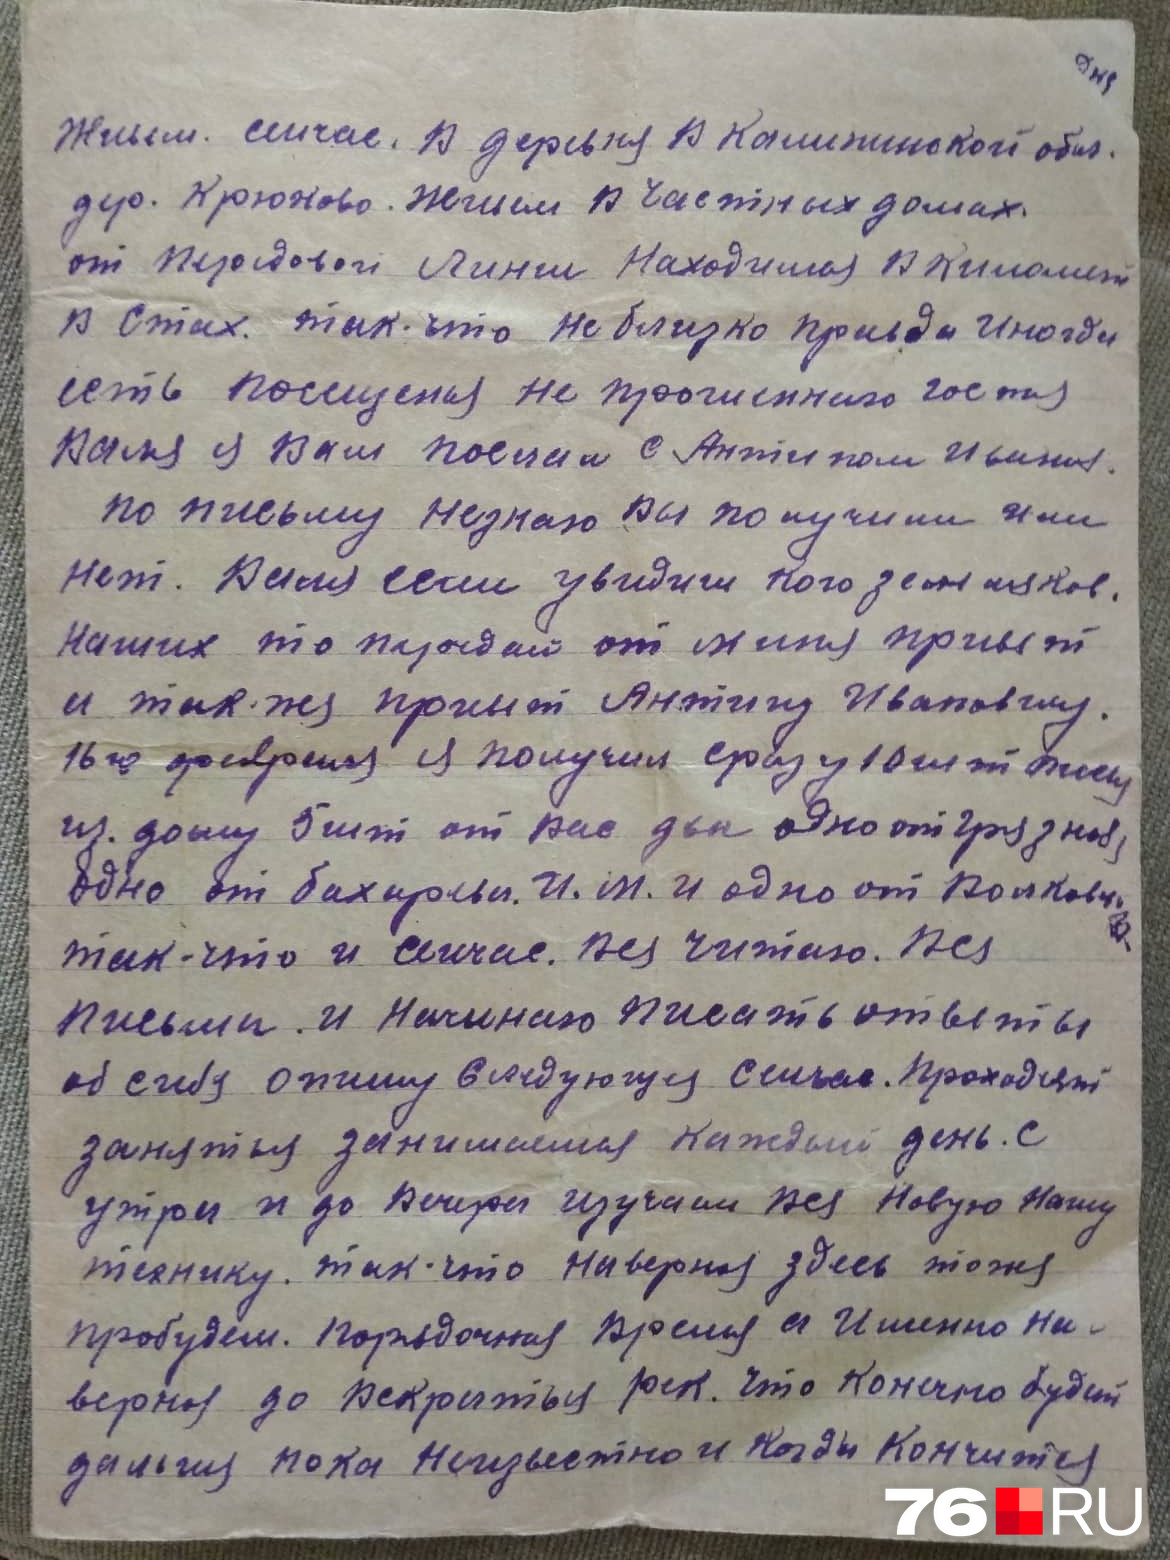 дня
Живем. сейчас. В деревня В Калининской обл.
дер. Крюково. Живем В Частных домах.
от Передовой Линии Находимся В Километ
В Стах. так-что не близко правда Иногда
есть Посещеня не прогиенного гостя
Валя я Вам послал с Антипом Иваныч.
по письму незнаю Вы получили или
нет. Валя если увидиш кого земляков.
Наших то передай от миня привет
и так-же привет Антипу Ивановичу.
16го февраля я получил сразу 10 шт писем
из. дому 5 шт от Вас два одно от Грязнова
одно от Бахарева. И. М. и одно от Волкова
так-что и сейчас. Вся Читаю. Вся
Письма. и Начинаю Писать ответы
об себя опишу следующея Сейчас. Проходят
занятья занимаемся каждый день. С
утра и до Вечера изучаем Вся Новую Нашу
технику. так-что наверная здесь тожа
пробудем. Порядочная Время а Именно на-
верная до Вскрытья рек. Что конечно будет
дальшя пока Неизвестно и Когда Кончится
76.RU